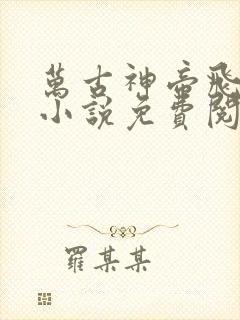 萬古神帝飛
小說免費閱
羅某某